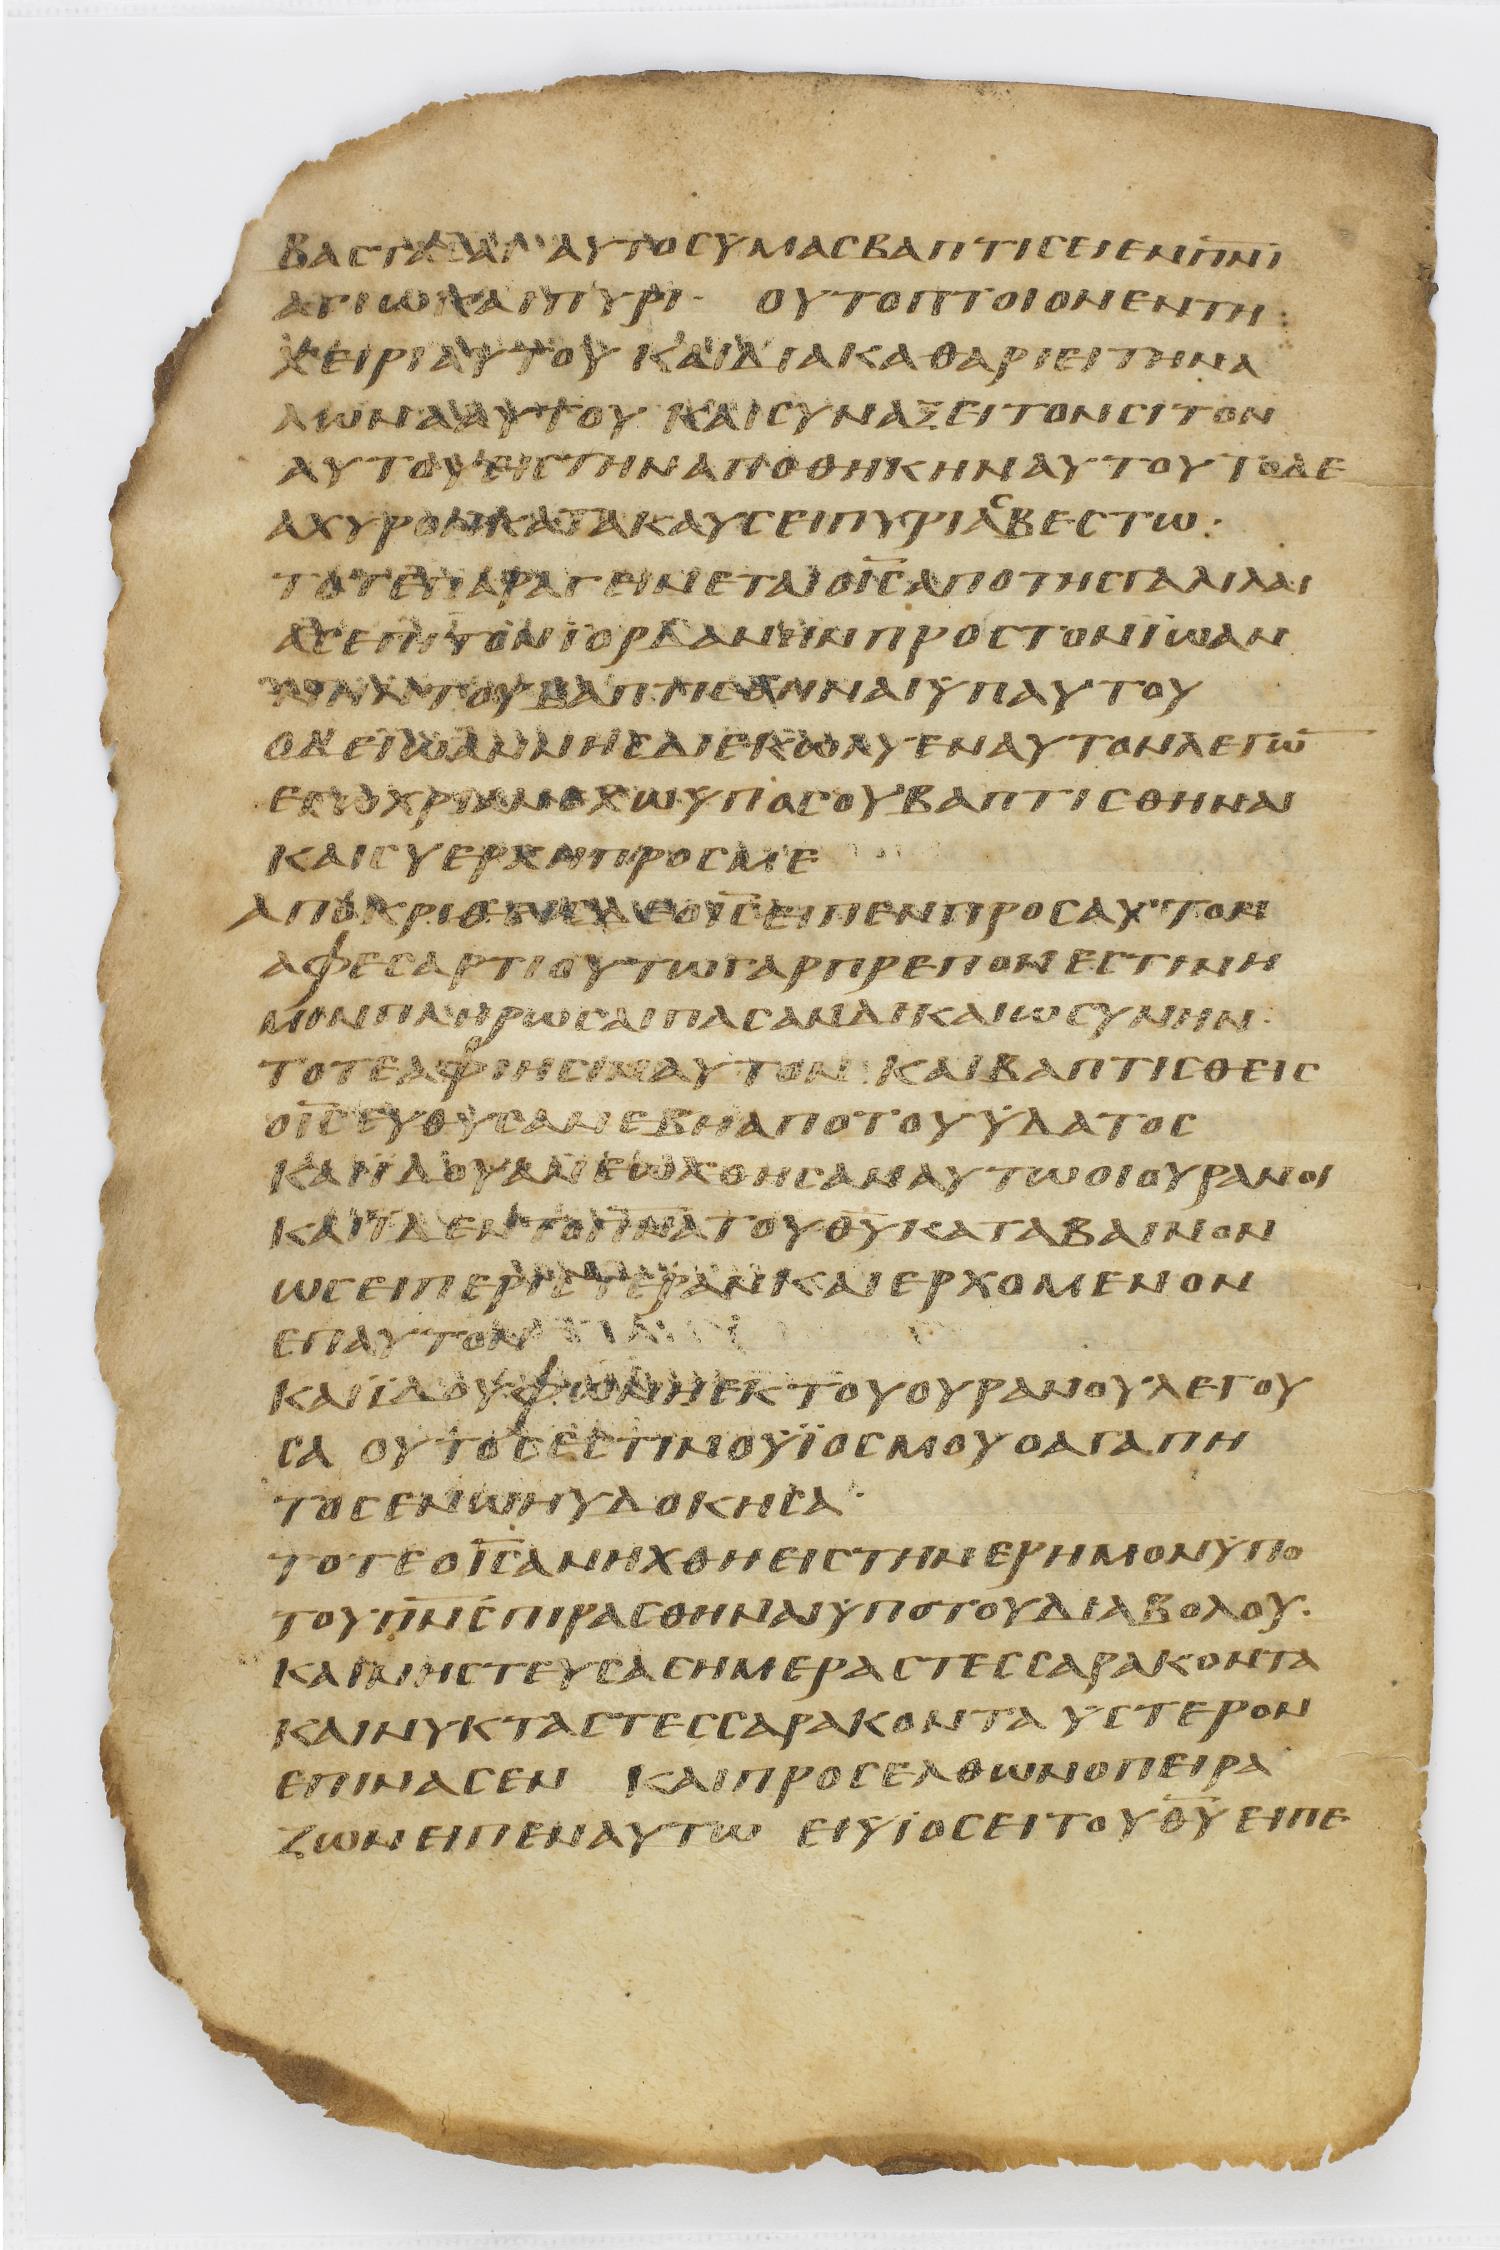 ΒΑϹΤΑϹΑΙ· ΑΥΤΟϹΥΜΑϹΒΑΠΤΙϹΕΙΕΝΠ̅Ν̅Ι̅
ΑΓΙΩΚΑΙΠΥΡΙ· ΟΥΤΟΠΤΟΙΟΝΕΝΤΗ
ΧΕΙΡΙΑΥΤΟΥ ΚΑΙΔΙΑΚΑΘΑΡΙΕΙΤΗΝΑ
ΛΩΝΑΑΥΤΟΥ ΚΑΙϹΥΝΑΞΕΙΤΟΝϹΙΤΟΝ
ΑΥΤΟΥΕΙϹΤΗΝΑΠΟΘΗΚΗΝΑΥΤΟΥΤΟΔΕ
ΑΧΥΡΟΝΚΑΤΑΚΑΥϹΕΙΠΥΡΙΑϹΒΕϹΤΩ·
ΤΟΤΕΠΑΡΑΓΕΙΝΕΤΑΙΟΙ̅Ϲ̅ΑΠΟΤΗϹΓΑΛΙΛΑΙ
ΑϹΕΠΙΤΟΝΪΟΡΔΑΝΗΝΠΡΟϹΤΟΝΪΩΑΝ
ΝΗΝΤΟΥΒΑΠΤΙϹΘΗΝΑΙΫΠΑΥΤΟΥ
ΟΔΕΪΩΑΝΝΗϹΔΙΕΚΩΛΥΕΝΑΥΤΟΝΛΕΓΩ̅
ΕΓΩΧΡΙΑΝΕΧΩΫΠΟϹΟΥΒΑΠΤΙϹΘΗΝΑΙ
ΚΑΙϹΥΕΡΧΗΠΡΟϹΜΕ
ΑΠΟΚΡΙΘΕΙϹΔΕΟΙ̅Ϲ̅ΕΙΠΕΝΠΡΟϹΑΥΤΟΝ
ΑΦΕϹΑΡΤΙΟΥΤΩΓΑΡΠΡΕΠΟΝΕϹΤΙΝΗ
ΜΙΝΠΛΗΡΩϹΑΙΠΑϹΑΝΔΙΚΑΙΩϹΥΝΗΝ·
ΤΟΤΕΑΦΙΗϹΙΝΑΥΤΟΝ ΚΑΙΒΑΠΤΙϹΘΕΙϹ
ΟΙ̅Ϲ̅ΕΥΘΥϹΑΝΕΒΗΑΠΟΤΟΥΫΔΑΤΟϹ
ΚΑΙΪΔΟΥΑΝΕΩΧΘΗϹΑΝΑΥΤΩΟΙΟΥΡΑΝΟΙ
ΚΑΙΪΔΕΝΤΟΠ̅Ν̅Α̅ΤΟΥΘ̅Υ̅ΚΑΤΑΒΑΙΝΟΝ
ΩϹΕΙΠΕΡΙϹΤΕΡΑΝΚΑΙΕΡΧΟΜΕΝΟΝ
ΕΠΑΥΤΟΝ
ΚΑΙΪΔΟΥΦΩΝΗΕΚΤΟΥΟΥΡΑΝΟΥΛΕΓΟΥ
ϹΑ ΟΥΤΟϹΕϹΤΙΝΟΫΪΟϹΜΟΥΟΑΓΑΠΗ
ΤΟϹΕΝΩΗΥΔΟΚΗϹΑ·
ΤΟΤΕΟΙ̅Ϲ̅ΑΝΗΧΘΗΕΙϹΤΗΝΕΡΗΜΟΝΫΠΟ
ΤΟΥΠ̅Ν̅Ϲ̅ΠΙΡΑϹΘΗΝΑΙΫΠΟΤΟΥΔΙΑΒΟΛΟΥ·
ΚΑΙΝΗϹΤΕΥϹΑϹΗΜΕΡΑϹΤΕϹϹΑΡΑΚΟΝΤΑ
ΚΑΙΝΥΚΤΑϹΤΕϹϹΑΡΑΚΟΝΤΑΥϹΤΕΡΟΝ
ΕΠΙΝΑϹΕΝ ΚΑΙΠΡΟϹΕΛΘΩΝΟΠΕΙΡΑ
ΖΩΝΕΙΠΕΝΑΥΤΩ ΕΙΫΪΟϹΕΙΤΟΥΘ̅Υ̅ΕΙΠΕ